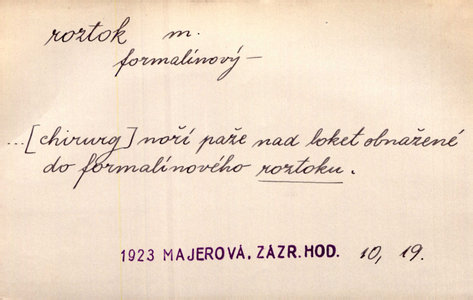 roztok m.
formalínový —
...[chirurg] noří paže nad loket obnažené
do formalínového roztoku.
1923 MAJEROVÁ, ZÁZR. HOD. 10, 19.